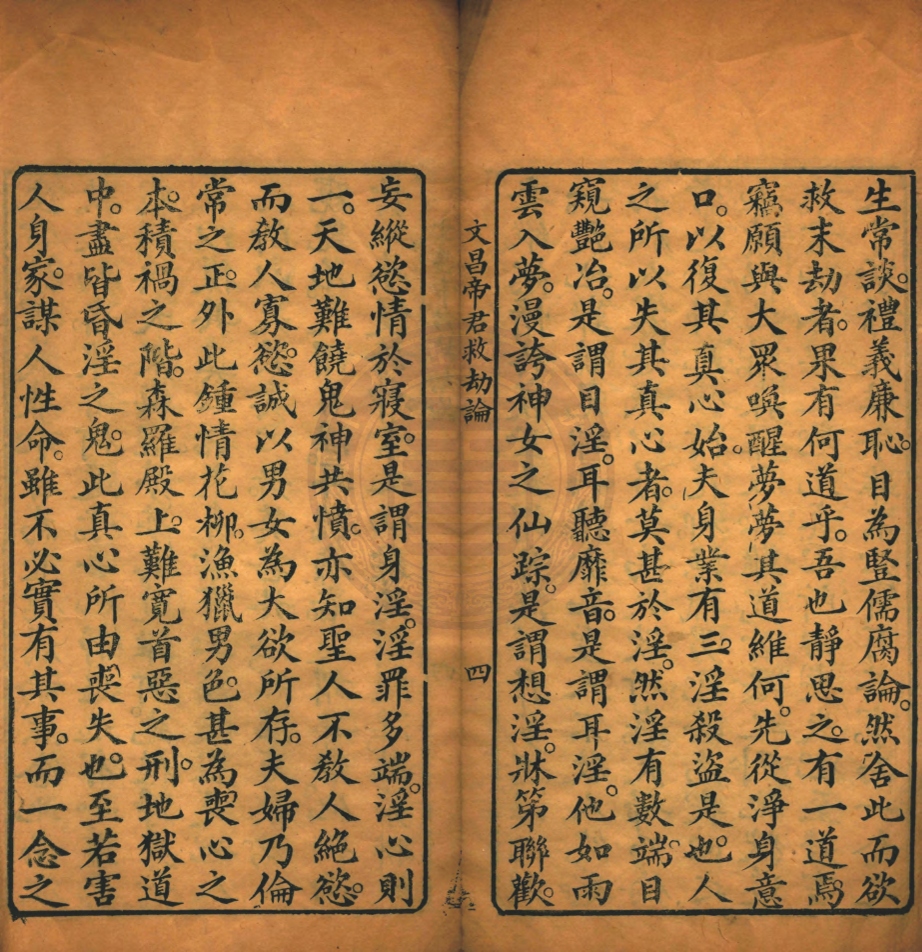 生常談。禮義廉恥。目為豎儒腐論。然舍此而欲
救末劫者。果有何道乎。吾也靜思之。有一道焉。
竊願與大眾喚醒夢夢。其道維何。先從淨身意
口。以復其真心始。夫身業有三。淫殺盜是也。人
之所以失其真心者。莫甚於淫。然淫有數端。目
窺艷冶。是謂目淫。耳聽靡音。是謂耳淫。他如雨
雲入夢。漫誇神女之仙踪。是謂想淫。牀第聯歡。
文昌帝君救劫論
四
妄縱慾情於寢室。是謂身淫。淫罪多端。淫心則
一。天地難饒。鬼神共憤。亦知聖人不教人絕慾。
而教人寡慾。誠以男女為大欲所存。夫婦乃倫
常之正。外此鍾情花柳。漁獵男色。甚為喪心之
本。積禍之階。森羅殿上。難寬首惡之刑。地獄道
中。盡皆昏淫之鬼。此真心所由喪失也。至若害
人身家。謀人性命。雖不必實有其事。而一念之